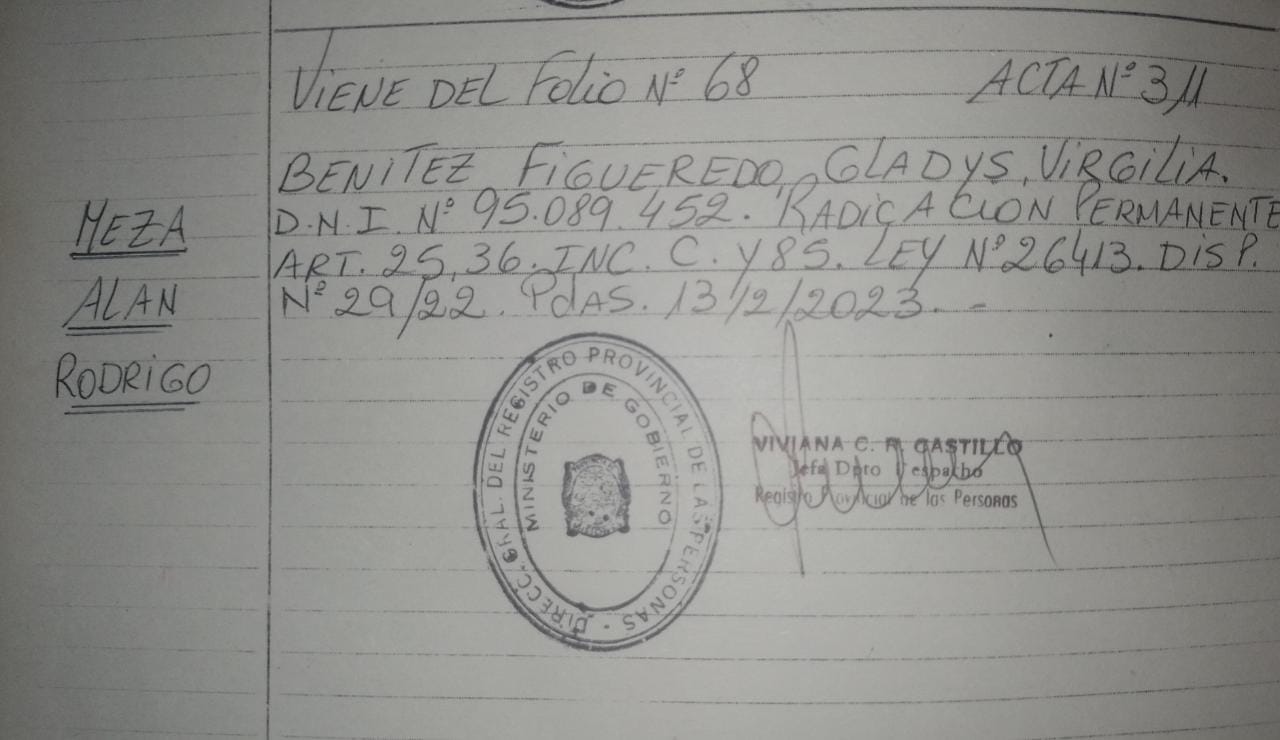 VIENE DEL FOLIO Nº 68 ACTA Nº 311
BENITEZ FIGUEREDO, GLADYS, VIRGILIA.
D.N.I. Nº 95.089.452. RADICACION PERMANENTE
ART. 25, 36. INC. C. Y 85. LEY Nº 26413. DISP.
Nº 29/22. PdAS. 13/2/2023. -
MEZA
ALAN
RODRIGO
DIRECC. GRAL. DEL REGISTRO PROVINCIAL DE LAS PERSONAS -
MINISTERIO DE GOBIERNO
VIVIANA C. R. CASTILLO
Jefa Dpto Despacho
Registro Provincial de las Personas